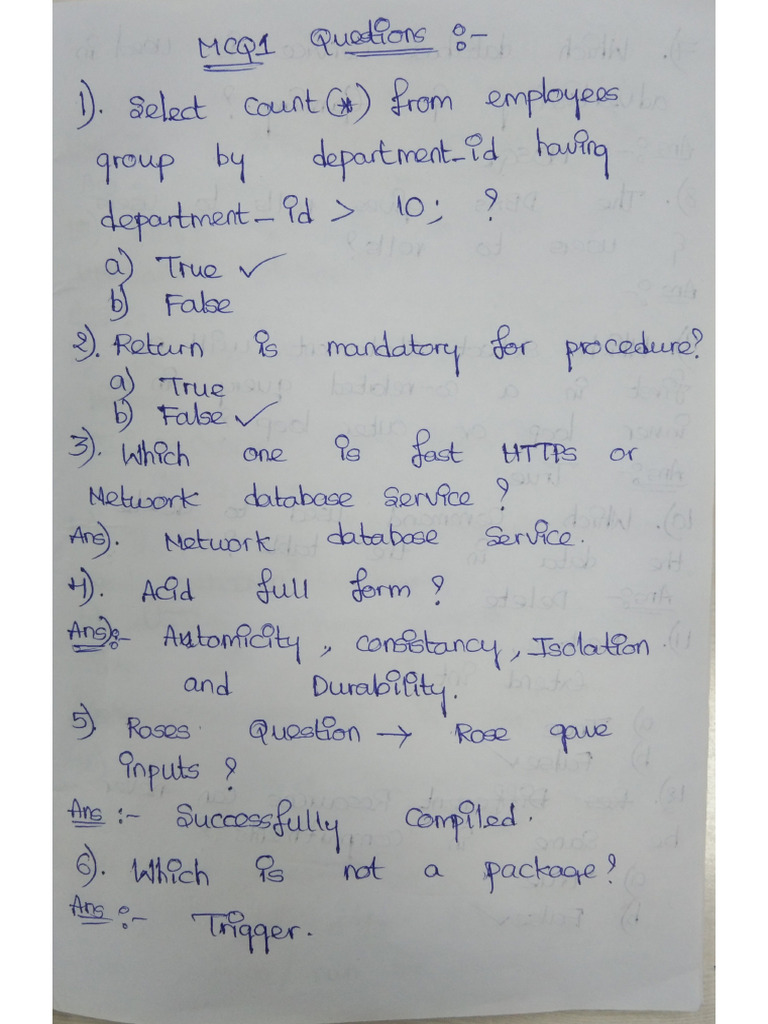 MCQ1 Questions :-
1). Select count(*) from employees
group by department_id having
department_id > 10; ?
a) True ✓
b) False
2). Return is mandatory for procedure?
a) True
b) False ✓
3). Which one is fast HTTPs or
Network database Service ?
Ans). Network database Service.
4). Acid full form ?
Ans):- Automicity, Consistancy, Isolation
and Durability.
5) Roses Question → Rose gave
inputs ?
Ans :- Successfully Compiled.
6). Which is not a package?
Ans :- Trigger.